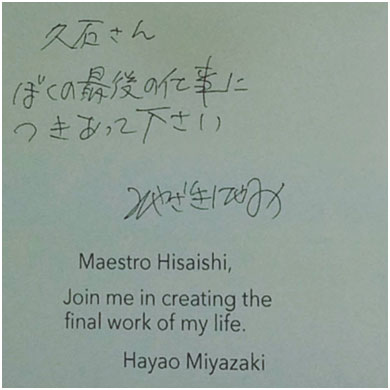 久石さん
ぼくの最後の仕事に
つきあって下さい
みやざきはやお
Maestro Hisaishi,
Join me in creating the
final work of my life.
Hayao Miyazaki